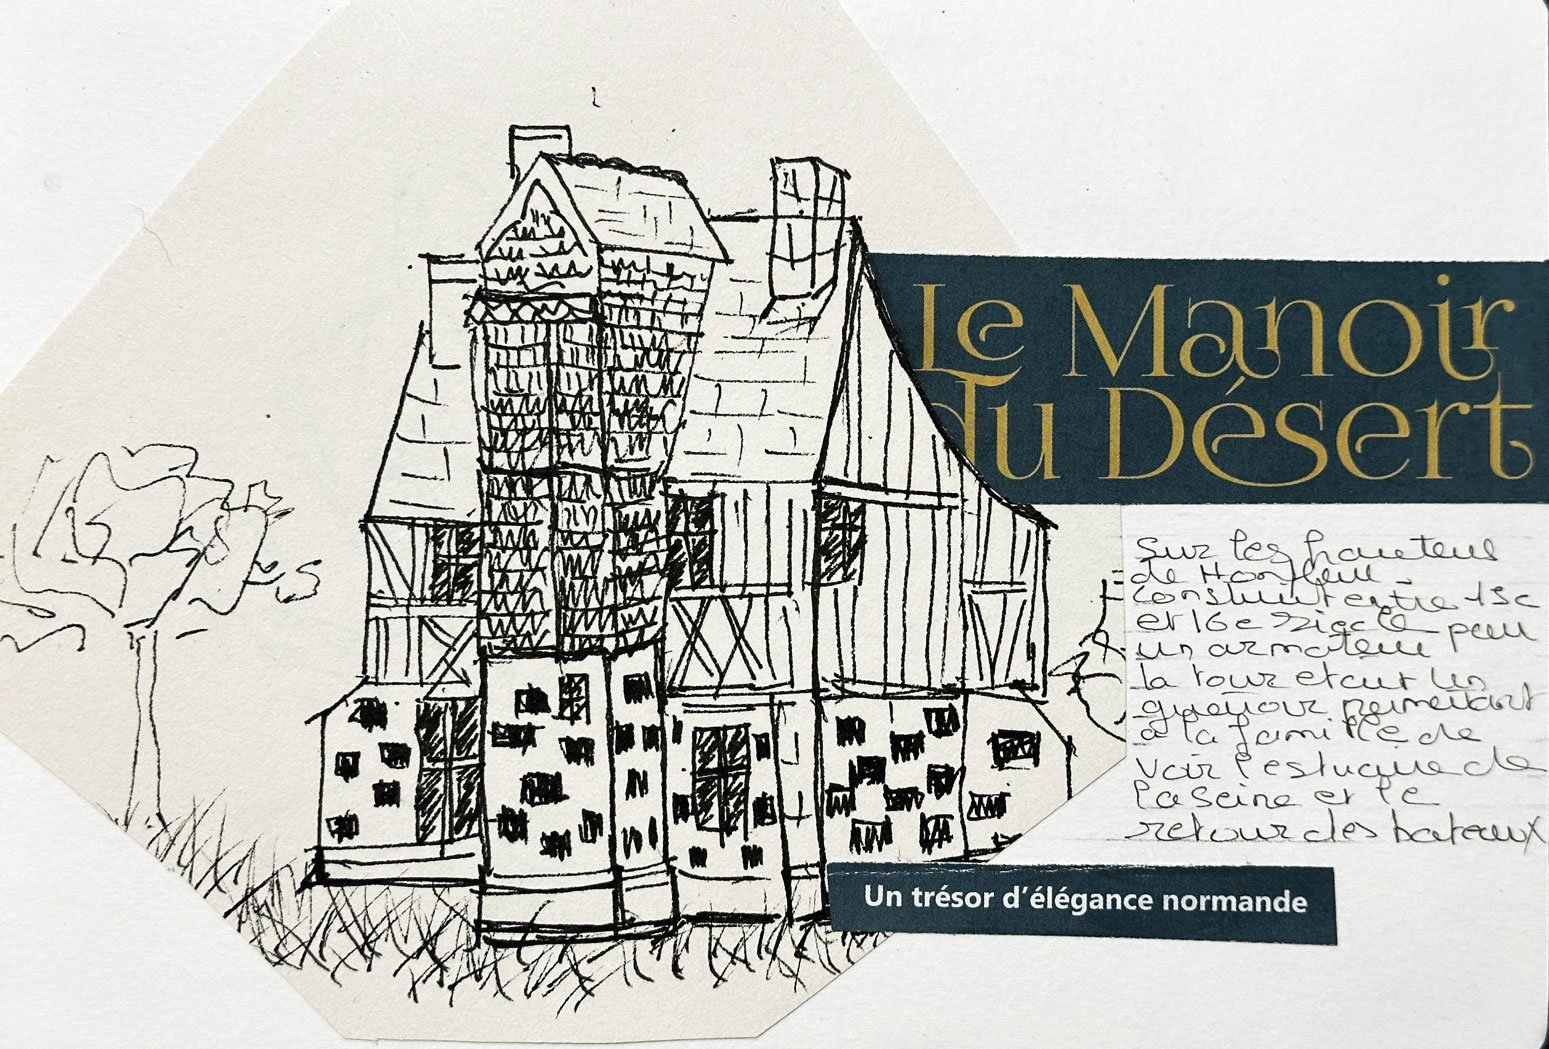 Le Manoir
du Désert
Sur les hauteurs
de Honfleur.
construit entre 15e
et 16e siècle pour
un armateur
la tour etait un
permettant
a la famille de
voir l'estuaire de
la Seine et le
retour des bateaux
Un trésor d'élégance normande